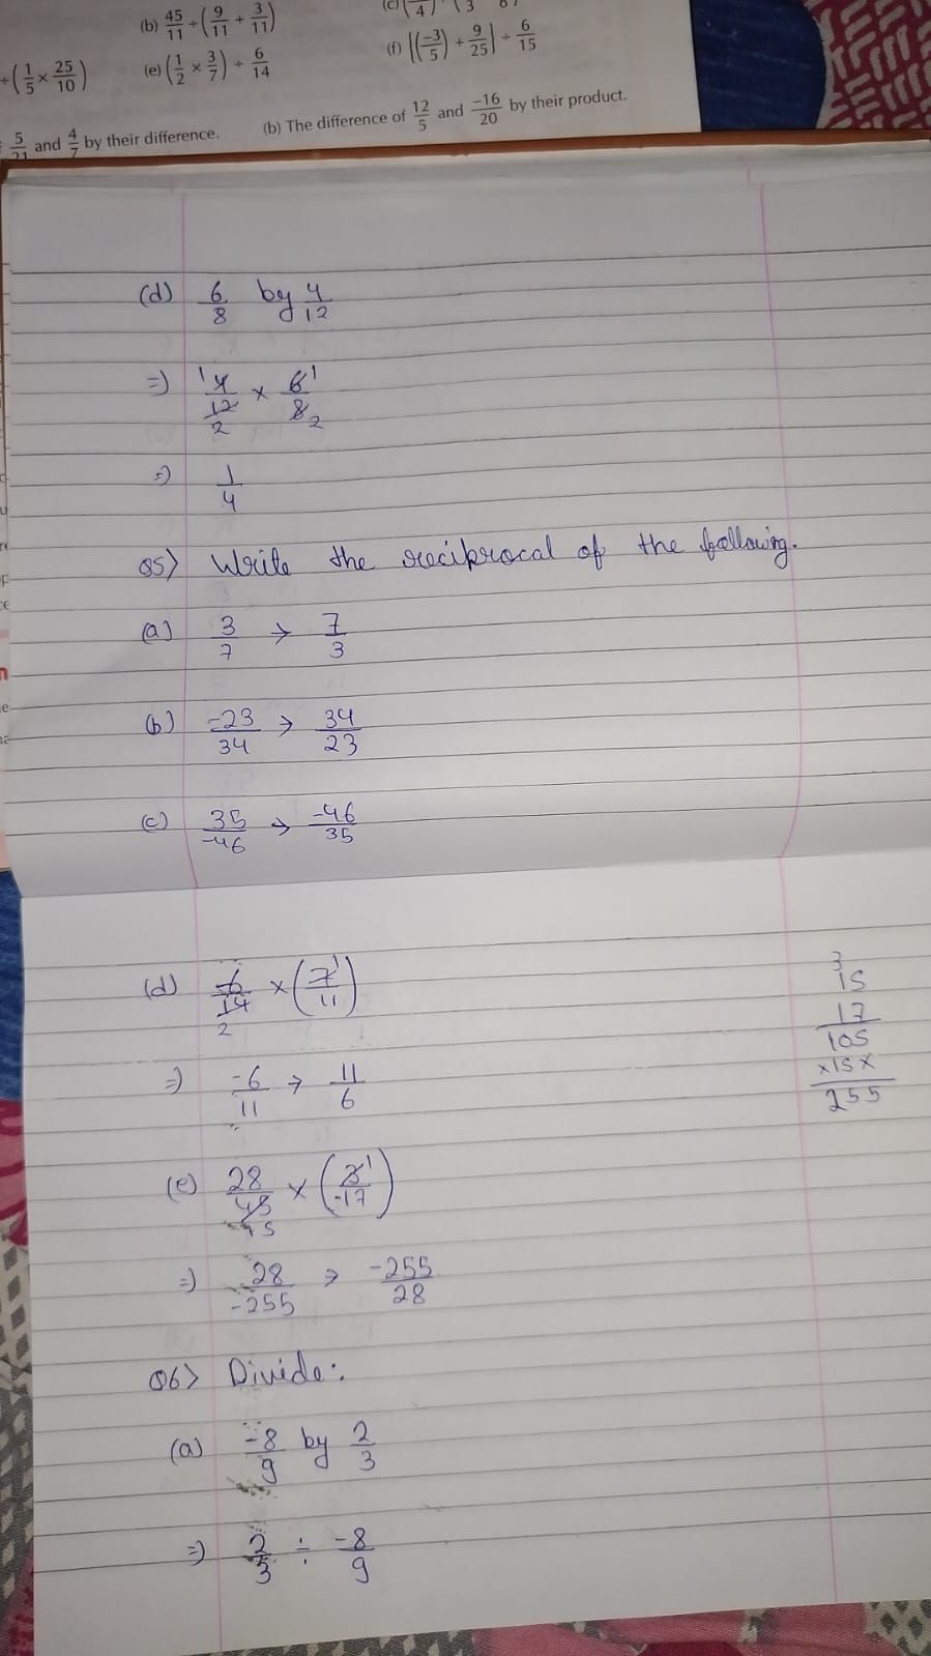 (b) 45/11 ÷ (9/11 + 3/11)
÷ (1/5 × 25/10) (e) (1/2 × 3/7) ÷ 6/14 (f) [(-3/5) + 9/25] ÷ 6/15
5/21 and 4/7 by their difference. (b) The difference of 12/5 and -16/20 by their product.
(d) 6/8 by 4/12
=) 4/12 × 6/8
1 2 1 2
=) 1/4
Q5> Write the reciprocal of the following.
(a) 3/7 → 7/3
(b) -23/34 → 34/23
(c) 35/-46 → -46/35
(d) -6/14 × (7/11)
2 1
=) -6/11 → 11/6
(e) 28/45 × (3/-17)
15 1
=) 28/-255 → -255/28
3
15
17
105
×15×
255
Q6> Divide:
(a) -8/9 by 2/3
=) 2/3 ÷ -8/9